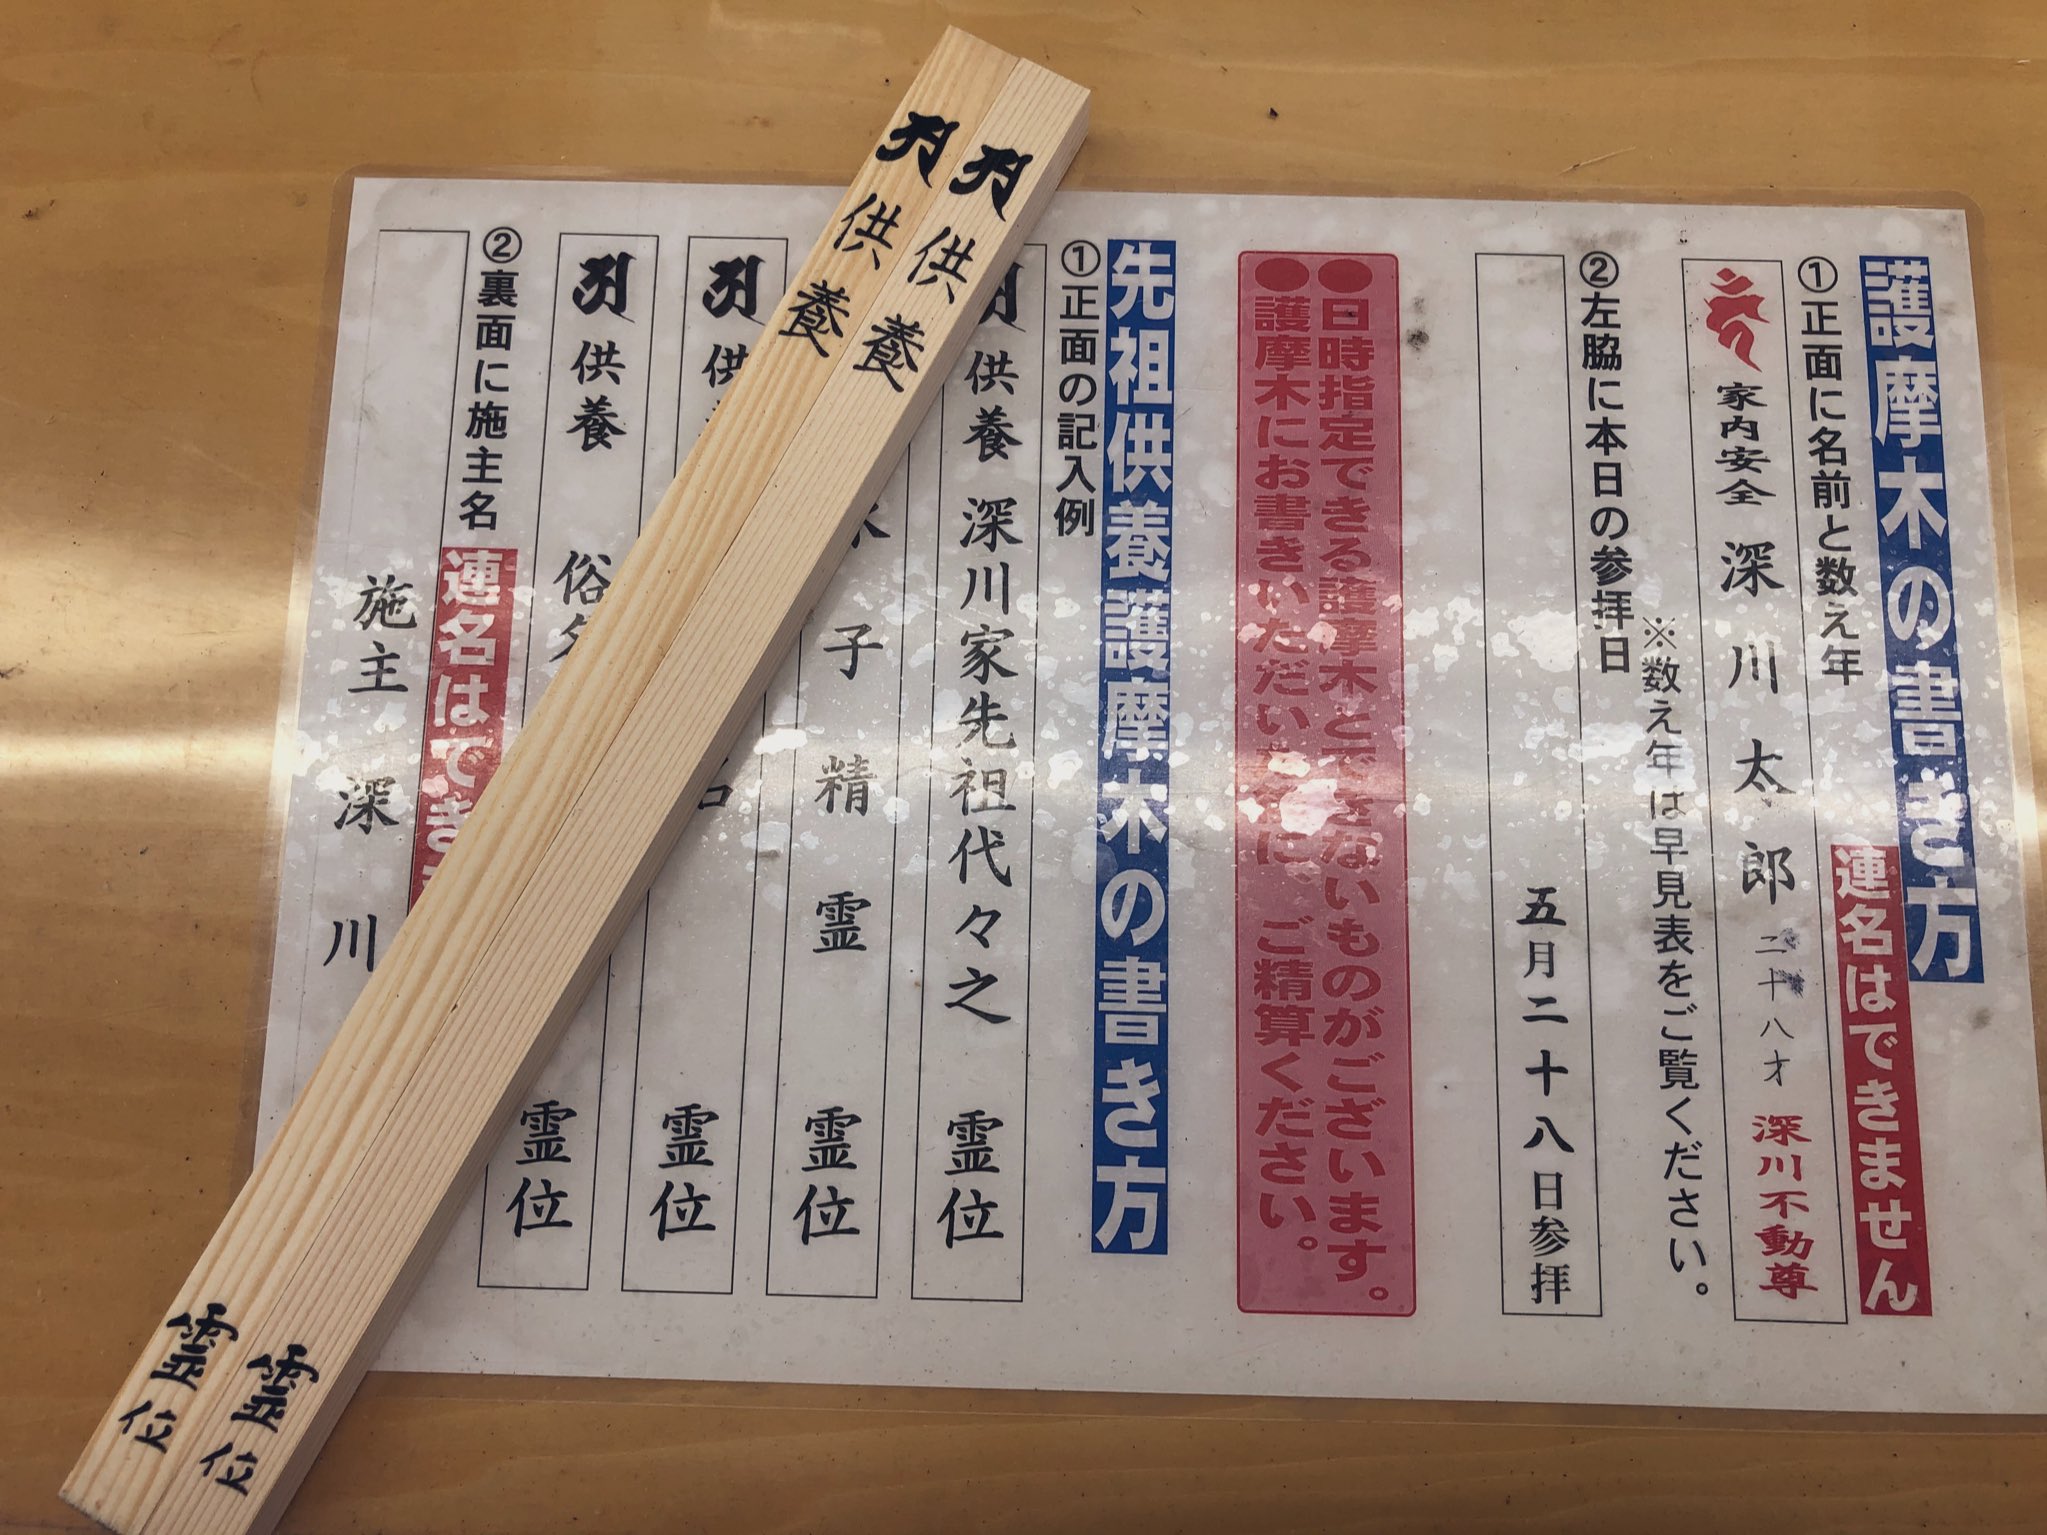 護摩木の書き方
連名はできません
①正面に名前と数え年
家内安全 深川太郎 二十八才 深川不動尊
※数え年は早見表をご覧ください。
②左脇に本日の参拝日
五月二十八日参拝
●日時指定できる護摩木とできないものがございます。
●護摩木にお書きいただいた後に、ご精算ください。
先祖供養護摩木の書き方
①正面の記入例
供養 深川家先祖代々之 霊位
子 精霊 霊位
供 霊位
供養 俗名 霊位
②裏面に施主名
連名はでき
施主 深川
供養 霊位
供養 霊位